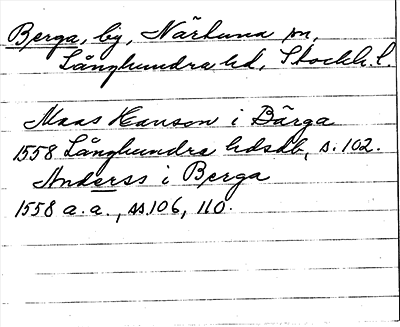 Berga, by, Närtuna sn,
Långhundra hd, Stockh. l.
Maas Hanson i Bärga
1558 Långhundra hdsdb, s. 102.
Anderss i Berga
1558 a. a., ss. 106, 110.